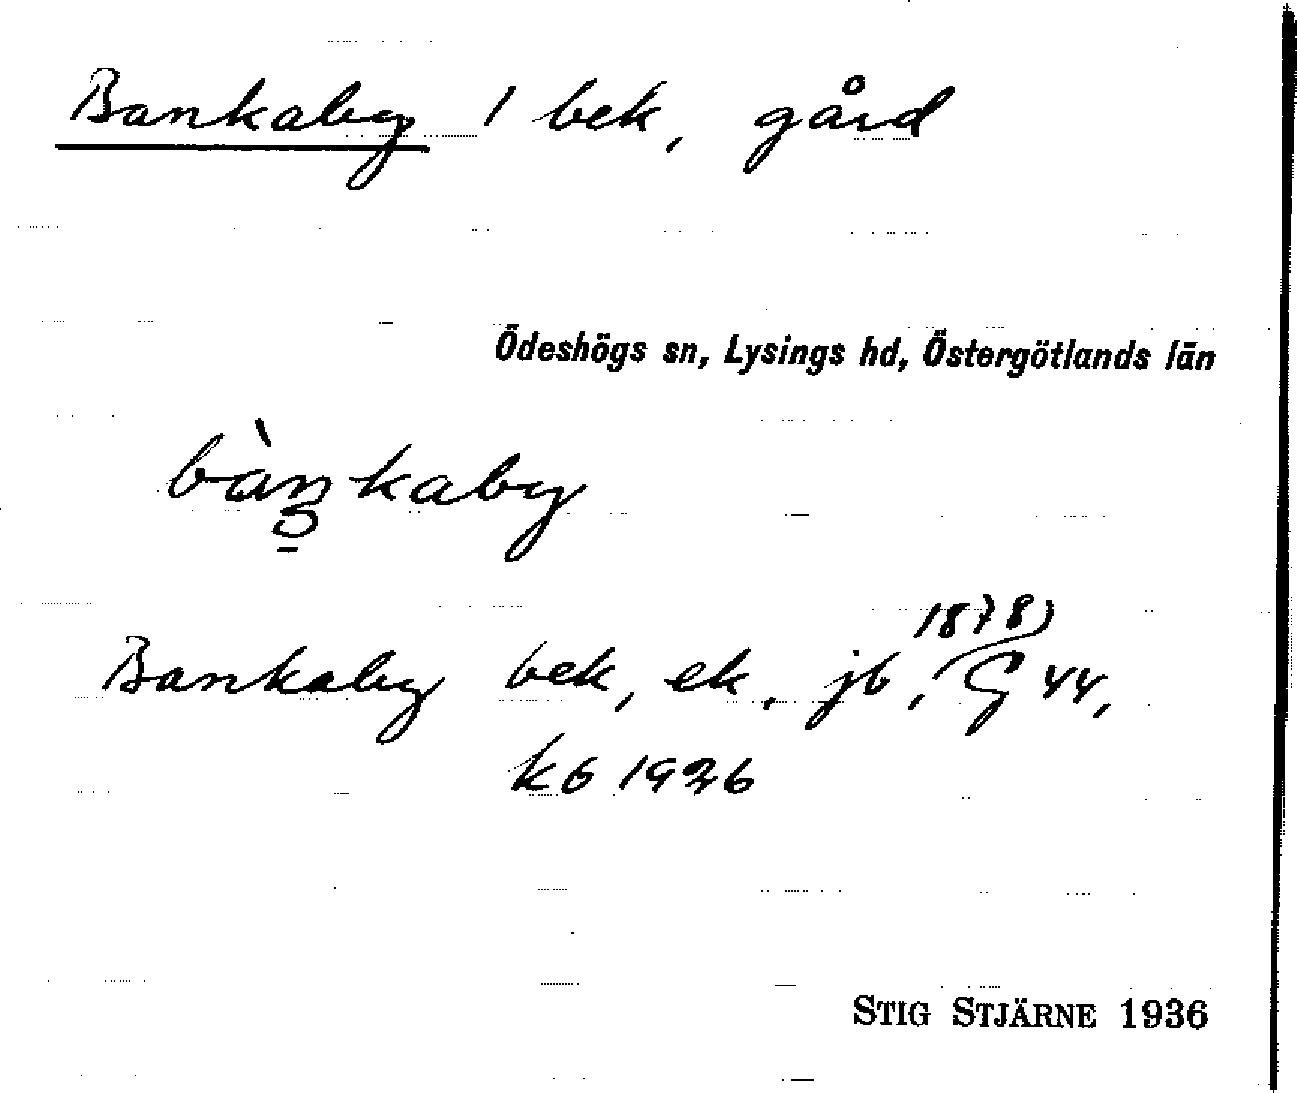 Bankaby 1 bek, gård
Ödeshögs sn, Lysings hd, Östergötlands län
bàŋkaby
Bankaby bek, ek, jb, 1878) G 44,
kb 1926
STIG STJÄRNE 1936